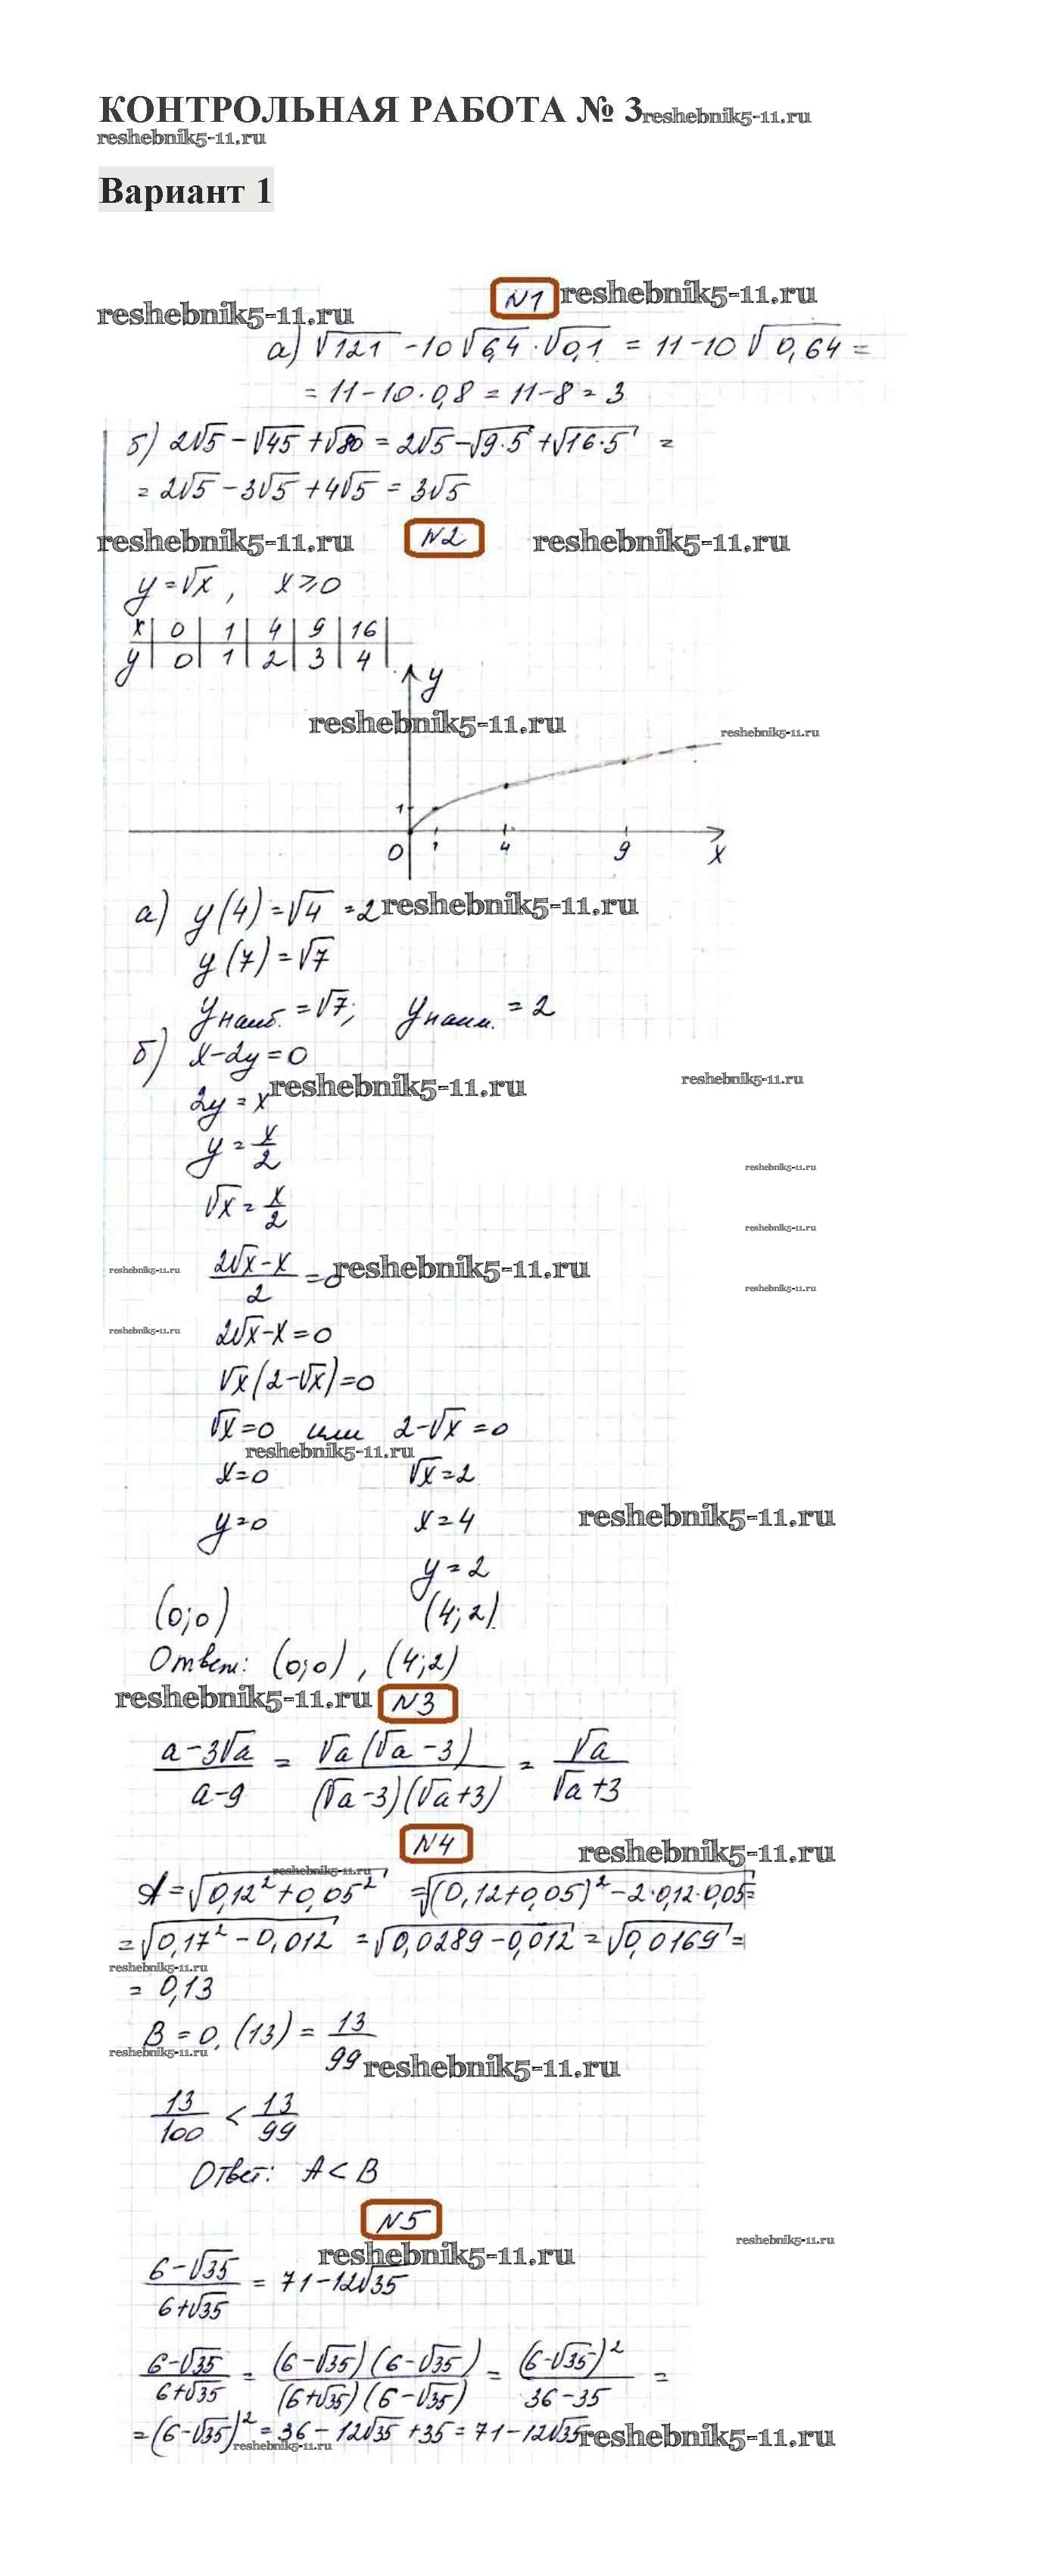 КОНТРОЛЬНАЯ РАБОТА № 3 reshebnik5-11.ru
reshebnik5-11.ru
Вариант 1
N1 reshebnik5-11.ru
reshebnik5-11.ru
а) √121 - 10√6,4 · √0,1 = 11 - 10√0,64 =
= 11 - 10 · 0,8 = 11 - 8 = 3
б) 2√5 - √45 + √80 = 2√5 - √9·5 + √16·5 =
= 2√5 - 3√5 + 4√5 = 3√5
reshebnik5-11.ru N2 reshebnik5-11.ru
y = √x, x ≥ 0
x | 0 | 1 | 4 | 9 | 16 |
y | 0 | 1 | 2 | 3 | 4 |
y
reshebnik5-11.ru reshebnik5-11.ru
1
0 1 4 9 x
а) y(4) = √4 = 2 reshebnik5-11.ru
y(7) = √7
yнаиб. = √7; yнаим. = 2
б) x - 2y = 0
2y = x reshebnik5-11.ru reshebnik5-11.ru
y = x/2
reshebnik5-11.ru
√x = x/2
reshebnik5-11.ru
reshebnik5-11.ru (2√x - x)/2 = 0 reshebnik5-11.ru
reshebnik5-11.ru
reshebnik5-11.ru 2√x - x = 0
√x(2 - √x) = 0
√x = 0 или 2 - √x = 0
reshebnik5-11.ru
x = 0 √x = 2
y = 0 x = 4 reshebnik5-11.ru
y = 2
(0; 0) (4; 2)
Ответ: (0; 0), (4; 2)
reshebnik5-11.ru N3
(a - 3√a)/(a - 9) = √a(√a - 3)/((√a - 3)(√a + 3)) = √a/(√a + 3)
N4 reshebnik5-11.ru
reshebnik5-11.ru
A = √0,12² + 0,05² = √(0,12 + 0,05)² - 2·0,12·0,05 =
= √0,17² - 0,012 = √0,0289 - 0,012 = √0,0169 =
reshebnik5-11.ru
= 0,13
B = 0,(13) = 13/99
reshebnik5-11.ru reshebnik5-11.ru
13/100 < 13/99
Ответ: A < B
N5
reshebnik5-11.ru
reshebnik5-11.ru
(6 - √35)/(6 + √35) = 71 - 12√35
(6 - √35)/(6 + √35) = (6 - √35)(6 - √35)/((6 + √35)(6 - √35)) = (6 - √35)²/(36 - 35) =
= (6 - √35)² = 36 - 12√35 + 35 = 71 - 12√35 reshebnik5-11.ru
reshebnik5-11.ru